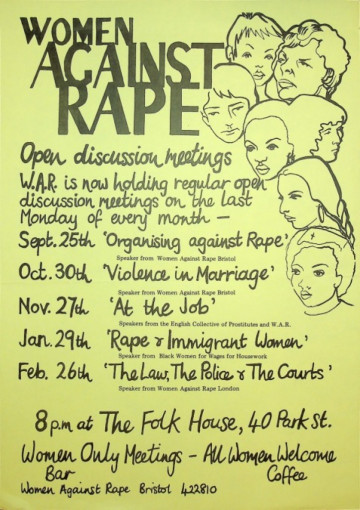 WOMEN
AGAINST
RAPE
Open discussion meetings
W.A.R. is now holding regular open
discussion meetings on the last
Monday of every month —
Sept. 25th 'Organising against Rape'
Speaker from Women Against Rape Bristol
Oct. 30th 'Violence in Marriage'
Speaker from Women Against Rape Bristol
Nov. 27th 'At the Job'
Speakers from the English Collective of Prostitutes and W.A.R.
Jan. 29th 'Rape & Immigrant Women'
Speaker from Black Women for Wages for Housework
Feb. 26th 'The Law, The Police & The Courts'
Speaker from Women Against Rape London
8 p.m at The Folk House, 40 Park St.
Women Only Meetings - All Women Welcome
Bar Coffee
Women Against Rape Bristol 422810